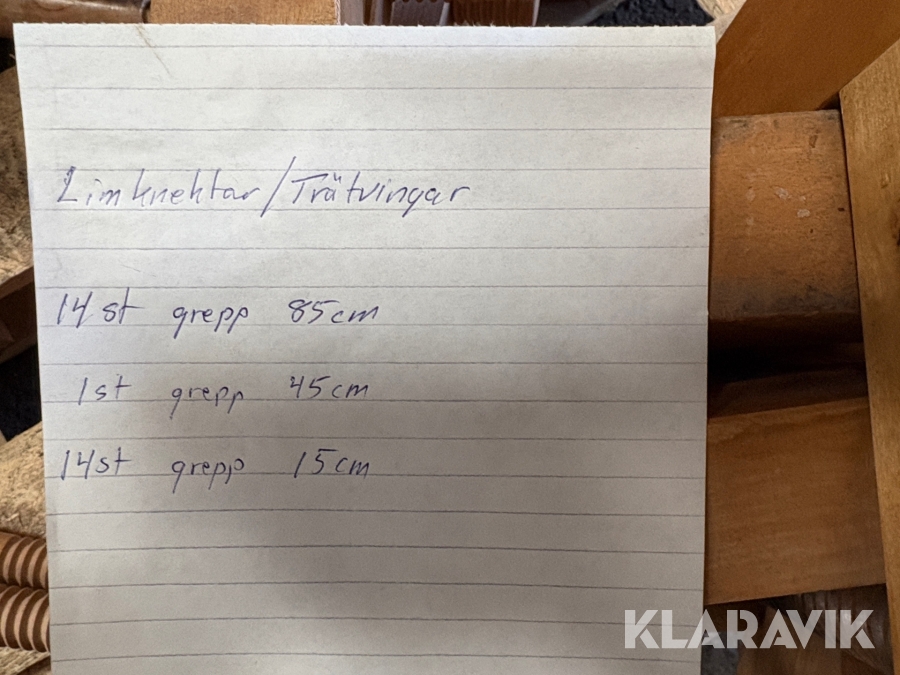 Limknehtar/Trätvingar
14st grepp 85cm
1st grepp 45cm
14st grepp 15cm
KLARAVIK